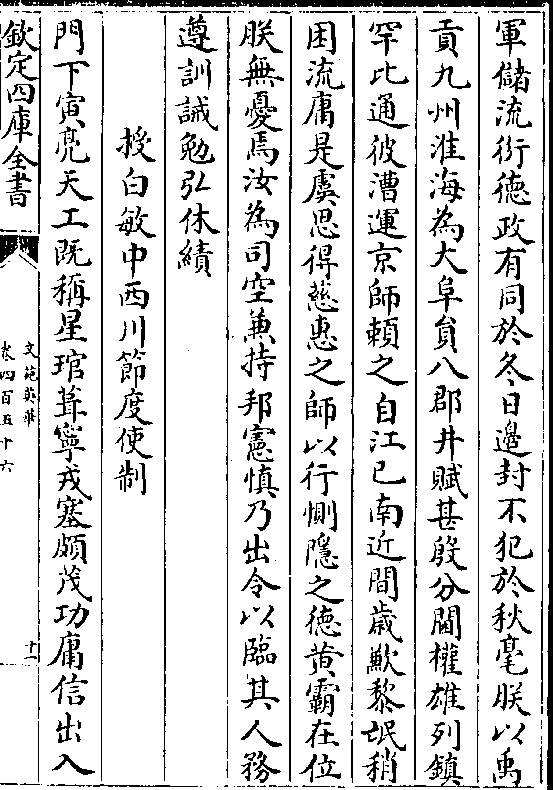 軍儲流衍德政有同於冬日邊封不犯於秋毫朕以禹
貢九州淮海為大阜員八郡井賦甚殷分閫權雄列鎮
罕比通彼漕運京師賴之自江已南近間歲歉黎氓稍
困流庸是虞思得慈惠之師以行惻隱之德黄霸在位
朕無憂焉汝為司空兼持邦憲慎乃出令以臨其人務
遵訓誡勉弘休績
授白敏中西川節度使制
門下寅亮天工既稱星琯葺寧戎塞頗茂功庸信出入
欽定四庫全書
文苑英華
卷四百五十六
十一